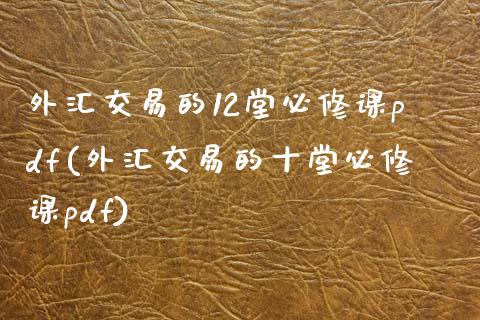 外汇交易的12堂必修课p
df(外汇交易的十堂必修
课pdf)